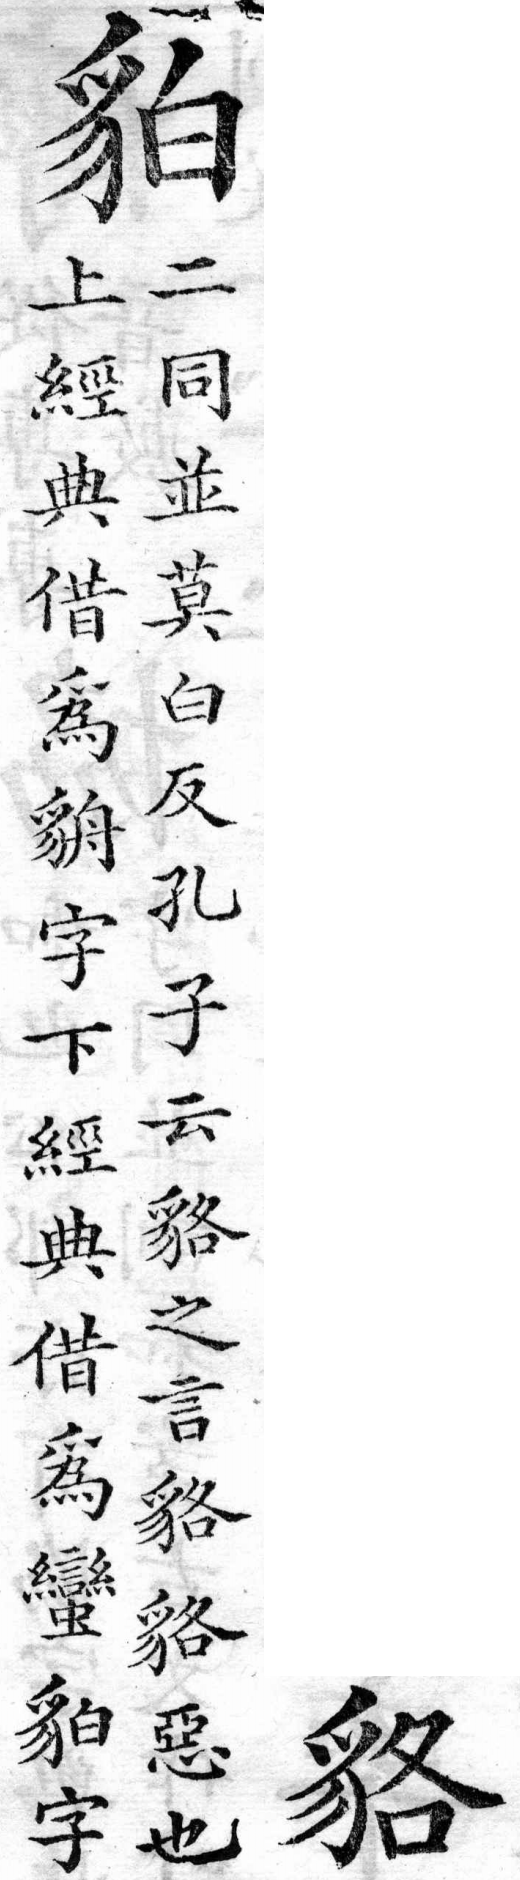 貉
貊
二同並莫白反孔子云貉之言貉貉惡也
上經典借爲貈字下經典借爲蠻貊字